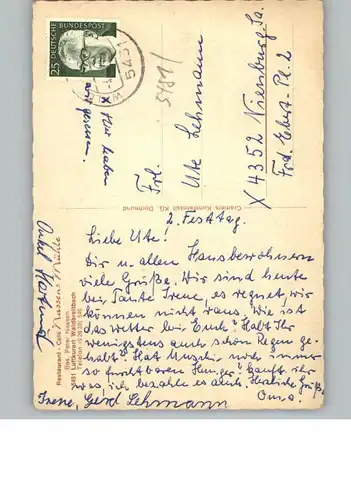 25 DEUTSCHE BUNDESPOST
5451
5451/
X Hier haben
wir gegessen.
Frl.
Ute Lehmann
X 4352 Nienburg Sa.
Frd. Ebert-Pl. 2
Cramers Kunstanstalt KG, Dortmund
2. Festtag.
Liebe Ute!
Dir u. allen Hausbewohnern
viele Grüße. Wir sind heute
bei Tante Irene, es regnet, wir
können nicht raus. Wie ist
das Wetter bei Euch? Habt Ihr
wenigstens auch schon Regen ge-
habt? Hat noch immer
so furchtbaren Hunger? Kauft ihr
was, ich bezahle es auch. Herzliche Grüße
Oma.
Irene, Gerd Lehmann
Onkel
Restaurant - Café Nassens Mühle
Bes. Peter Nassen
5451 Luftkurort Waldbreitbach
Telefon